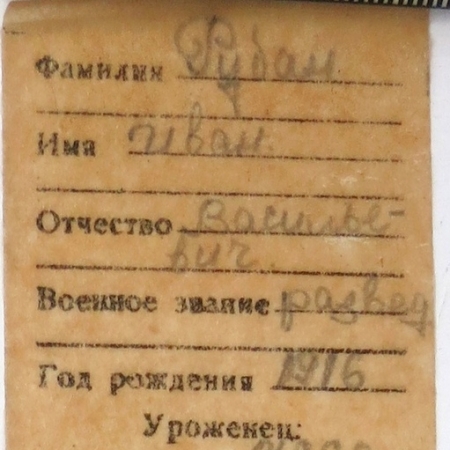 Фамилия Рубан
Имя Иван
Отчество Василье-
вич.
Военное звание развед
Год рождения 1916
Уроженец: